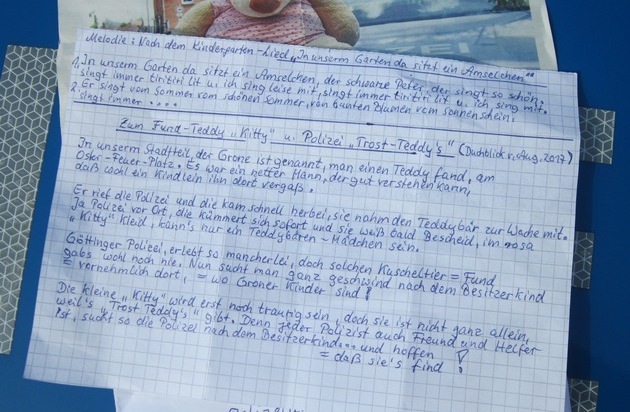 Melodie: Nach dem Kindergarten-Lied „In unserm Garten da sitzt ein Amselchen"
1. In unserm Garten da sitzt ein Amselchen, der schwarze Peter, der singt so schön;
singt immer tiritiri lit u. ich sing leise mit, singt immer tiritiri lit u. ich sing mit.
2. Er singt vom Sommer vom schönen Sommer, von bunten Blumen vom sonnenschein,
singt immer ....
Zum Fund-Teddy „Kitty" u. Polizei „Trost-Teddy's" (Durchblick v. Aug. 2017)
In unserm Stadtteil, der Grone ist genannt, man einen Teddy fand, am
Oster-Feuer-Platz. Es war ein netter Mann, der gut verstehen kann,
daß wohl ein Kindlein ihn dort vergaß.
Er rief die Polizei und die kam schnell herbei, sie nahm den Teddybär zur Wache mit.
Ja Polizei vor Ort, die kümmert sich sofort und sie weiß bald Bescheid, im rosa
„Kitty" Kleid, kann's nur ein Teddybären-Mädchen sein.
Göttinger Polizei, erlebt so mancherlei, doch solchen Kuscheltier = Fund
gabs wohl noch nie. Nun sucht man ganz geschwind nach dem Besitzerkind
= vornehmlich dort, = wo Groner Kinder sind!
Die kleine „Kitty" wird erst noch traurig sein, doch sie ist nicht ganz allein,
weil's „Trost Teddy's" gibt. Denn jeder Polizist auch Freund und Helfer
ist, sucht so die Polizei nach dem Besitzerkind... und hoffen
= daß sie's find!